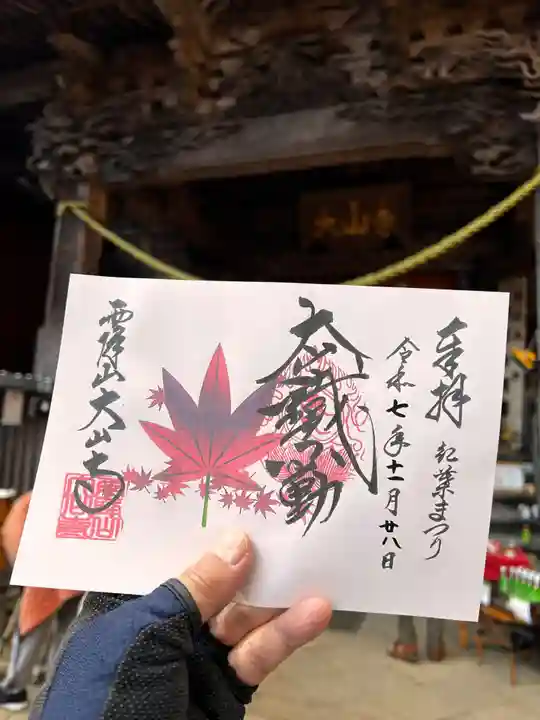 奉拝
紅葉まつり
令和七年十一月廿八日
大鐵不動
雨降山大山寺